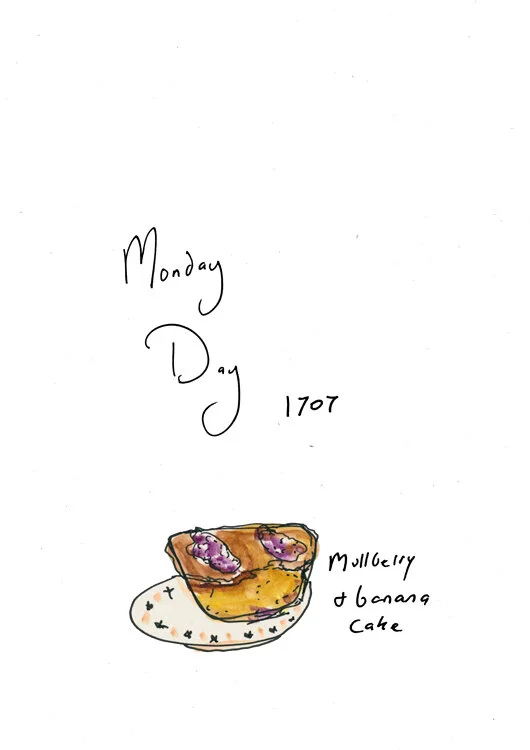 Monday
Day
1707
Mullberry
& banana
cake